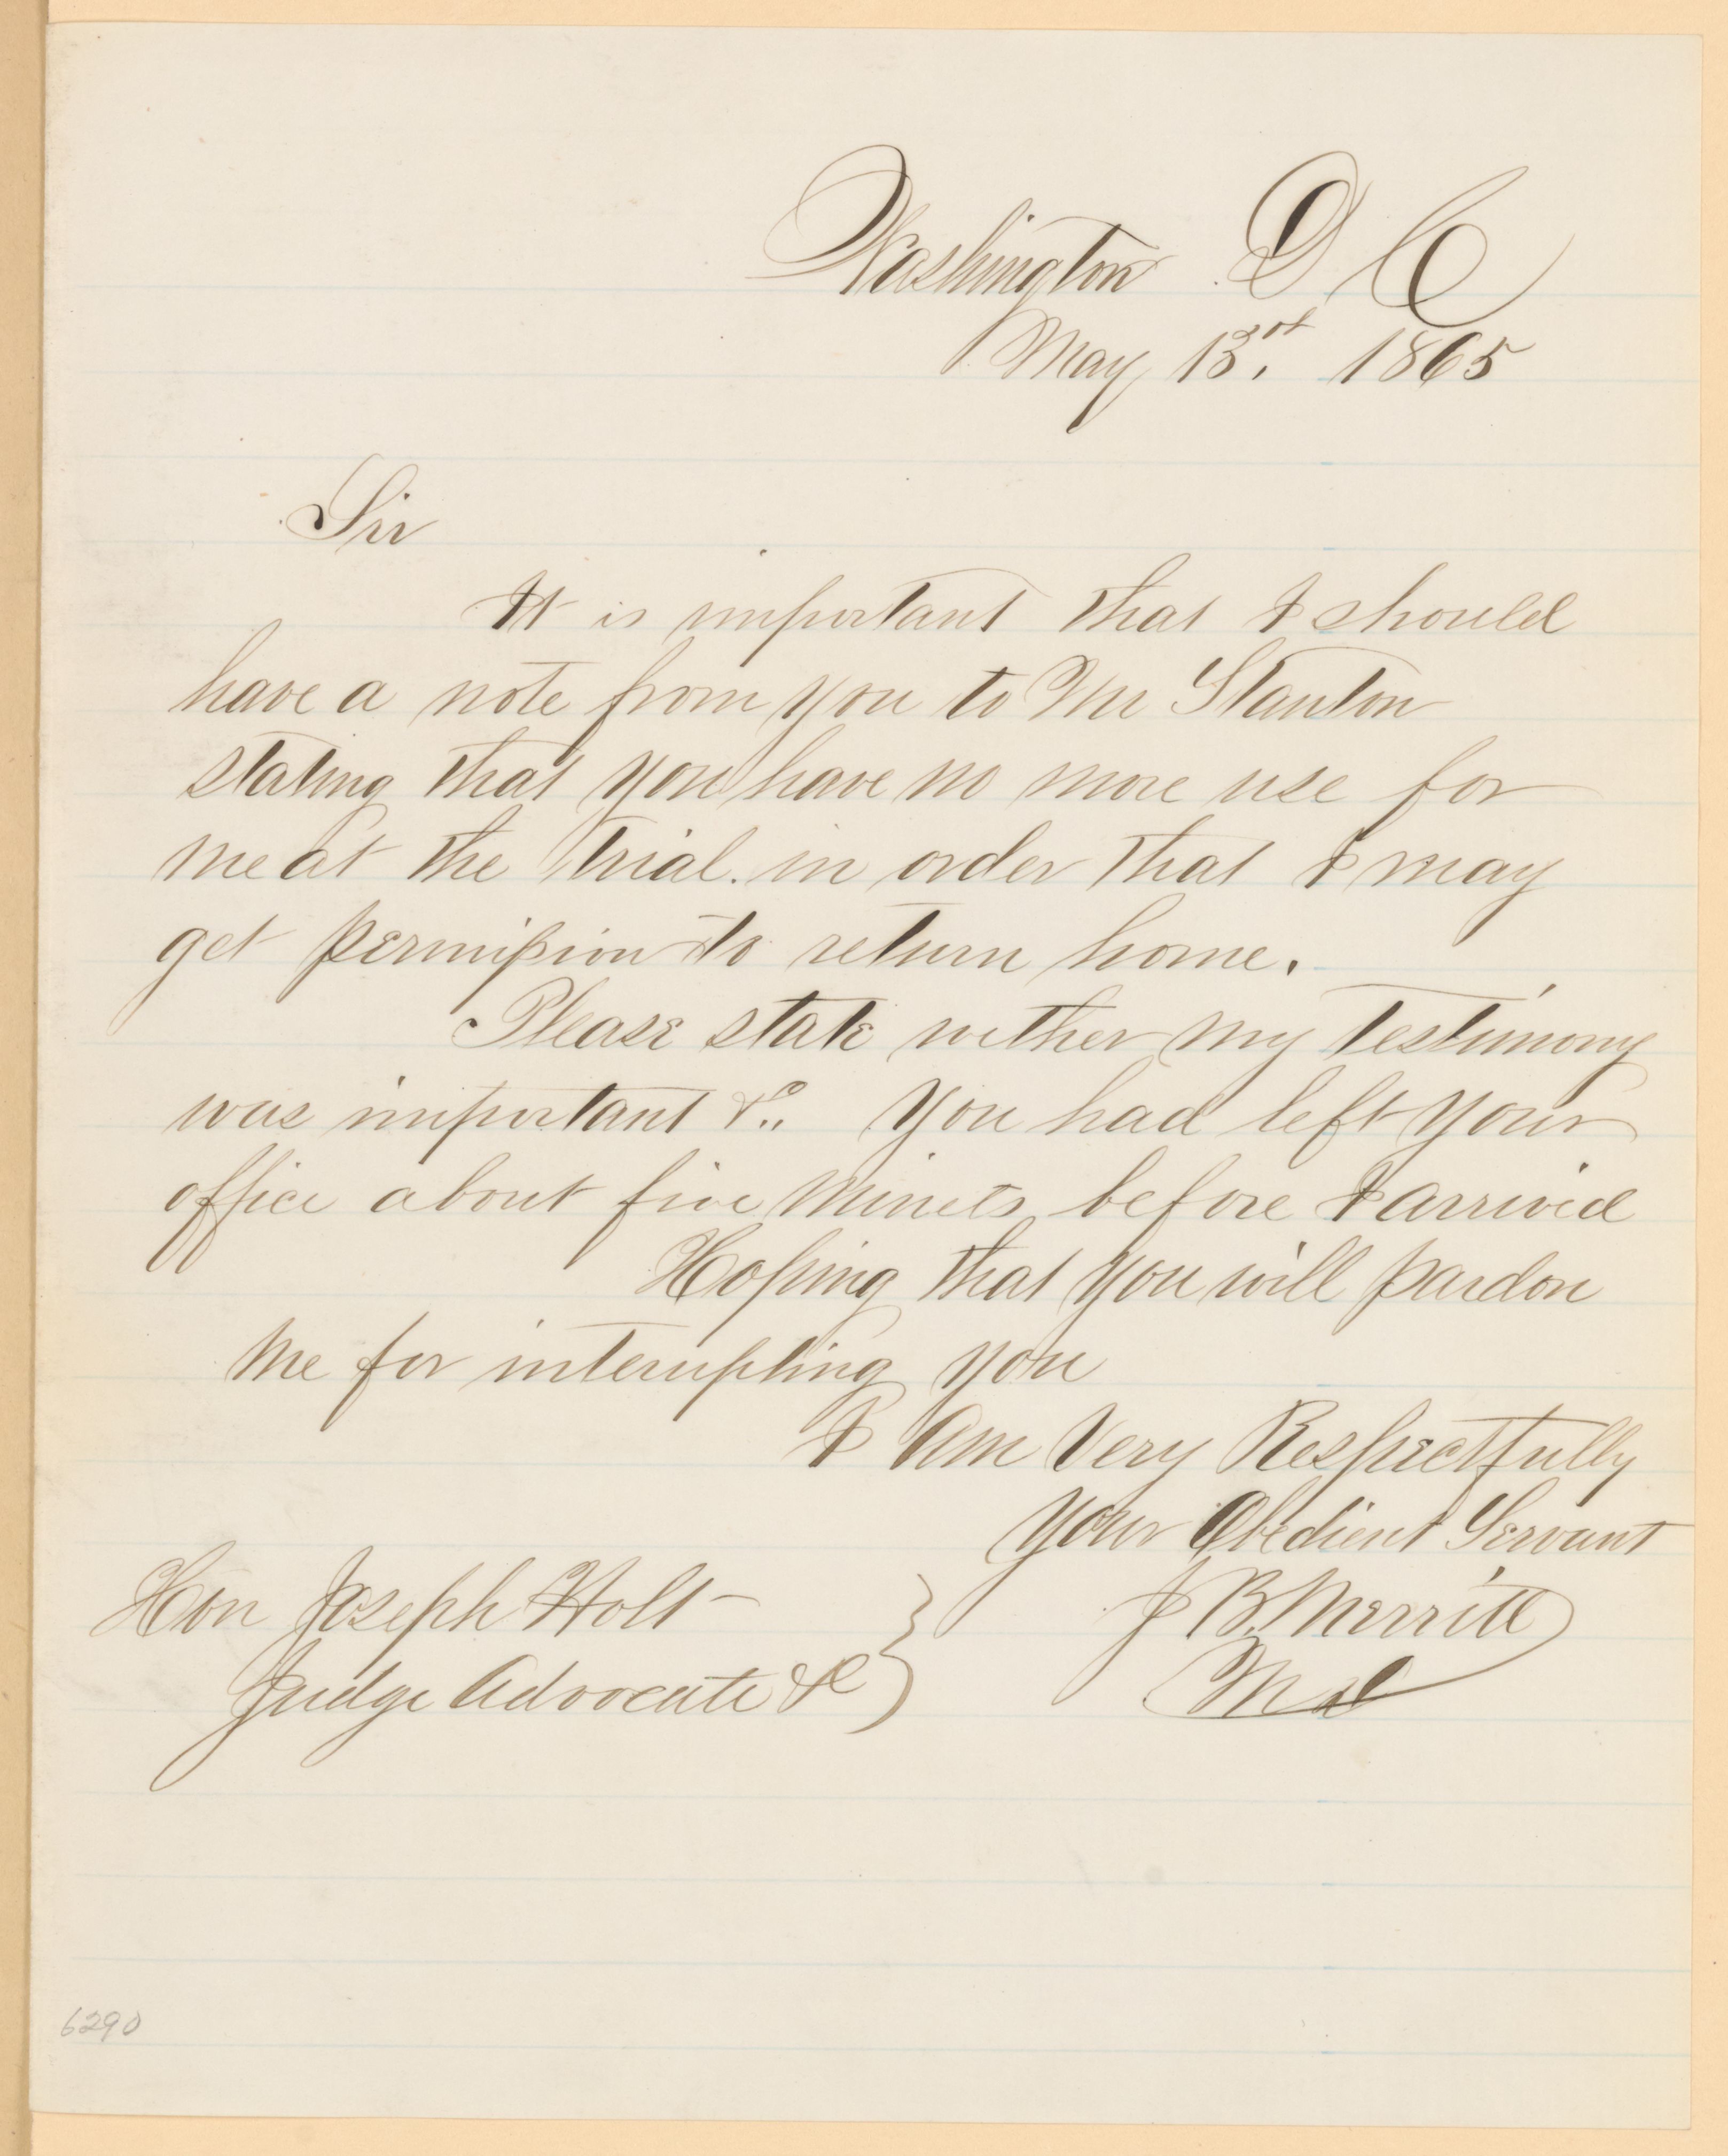 Washington D C
May 13rd. 1865
Sir
It is important that I should
have a note from you to Mr Stanton
stating that you have no more use for
me at the trial. in order that I may
get permission to return home.
Please state wether my testimony
was important &c. You had left your
office about five minets before I arrived
Hoping that you will pardon
me for interupting you
I am Very Respectfully
your Obedient Servant
J B. Merritt
Md
Hon Joseph Holt
Judge Advocate &c
6290